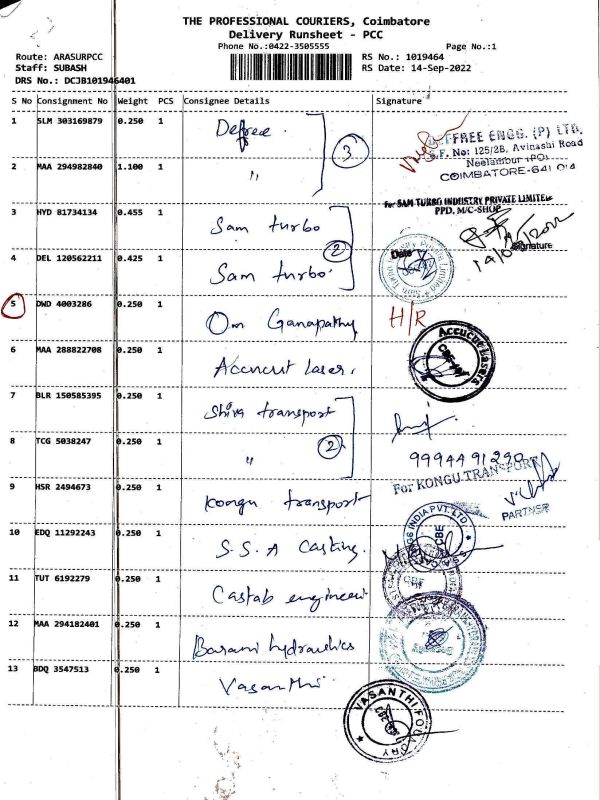 THE PROFESSIONAL COURIERS, Coimbatore
Delivery Runsheet - PCC
Phone No.:0422-3505555
Page No.:1
Route: ARASURPCC
Staff: SUBASH
DRS No.: DCJB101946401
RS No.: 1019464
RS Date: 14-Sep-2022
S No Consignment No Weight PCS Consignee Details Signature
1 SLM 303169879 0.250 1 Defree
3
FFREE ENGG. (P) LTD,
S.F. No: 125/2B, Avinashi Road
Neelambur (PO)
COIMBATORE-641 014
2 MAA 294982840 1.100 1 "
For SAM TURBO INDUSTRY PRIVATE LIMITED
PPD, M/C-SHOP
3 HYD 81734134 0.455 1 Sam turbo
2
Signature
Date
14/09/2022
4 DEL 120562211 0.425 1 Sam turbo
5 DWD 4003286 0.250 1 Om Ganapathy H/R
6 MAA 288822708 0.250 1 Accucut laser.
Accucut Lasers
7 BLR 150585395 0.250 1 Shiva transport
2
8 TCG 5038247 0.250 1 "
9994491290
For KONGU TRANSPORT
PARTNER
9 HSR 2494673 0.250 1 Kongu transport
10 EDQ 11292243 0.250 1 S.S.A Casting.
INDIA PVT. LTD.
CBE
11 TUT 6192279 0.250 1 Castab engineeri
12 MAA 294182401 0.250 1 Barani hydraulics
13 BDQ 3547513 0.250 1 Vasanthi
VASANTHI FOUNDRY